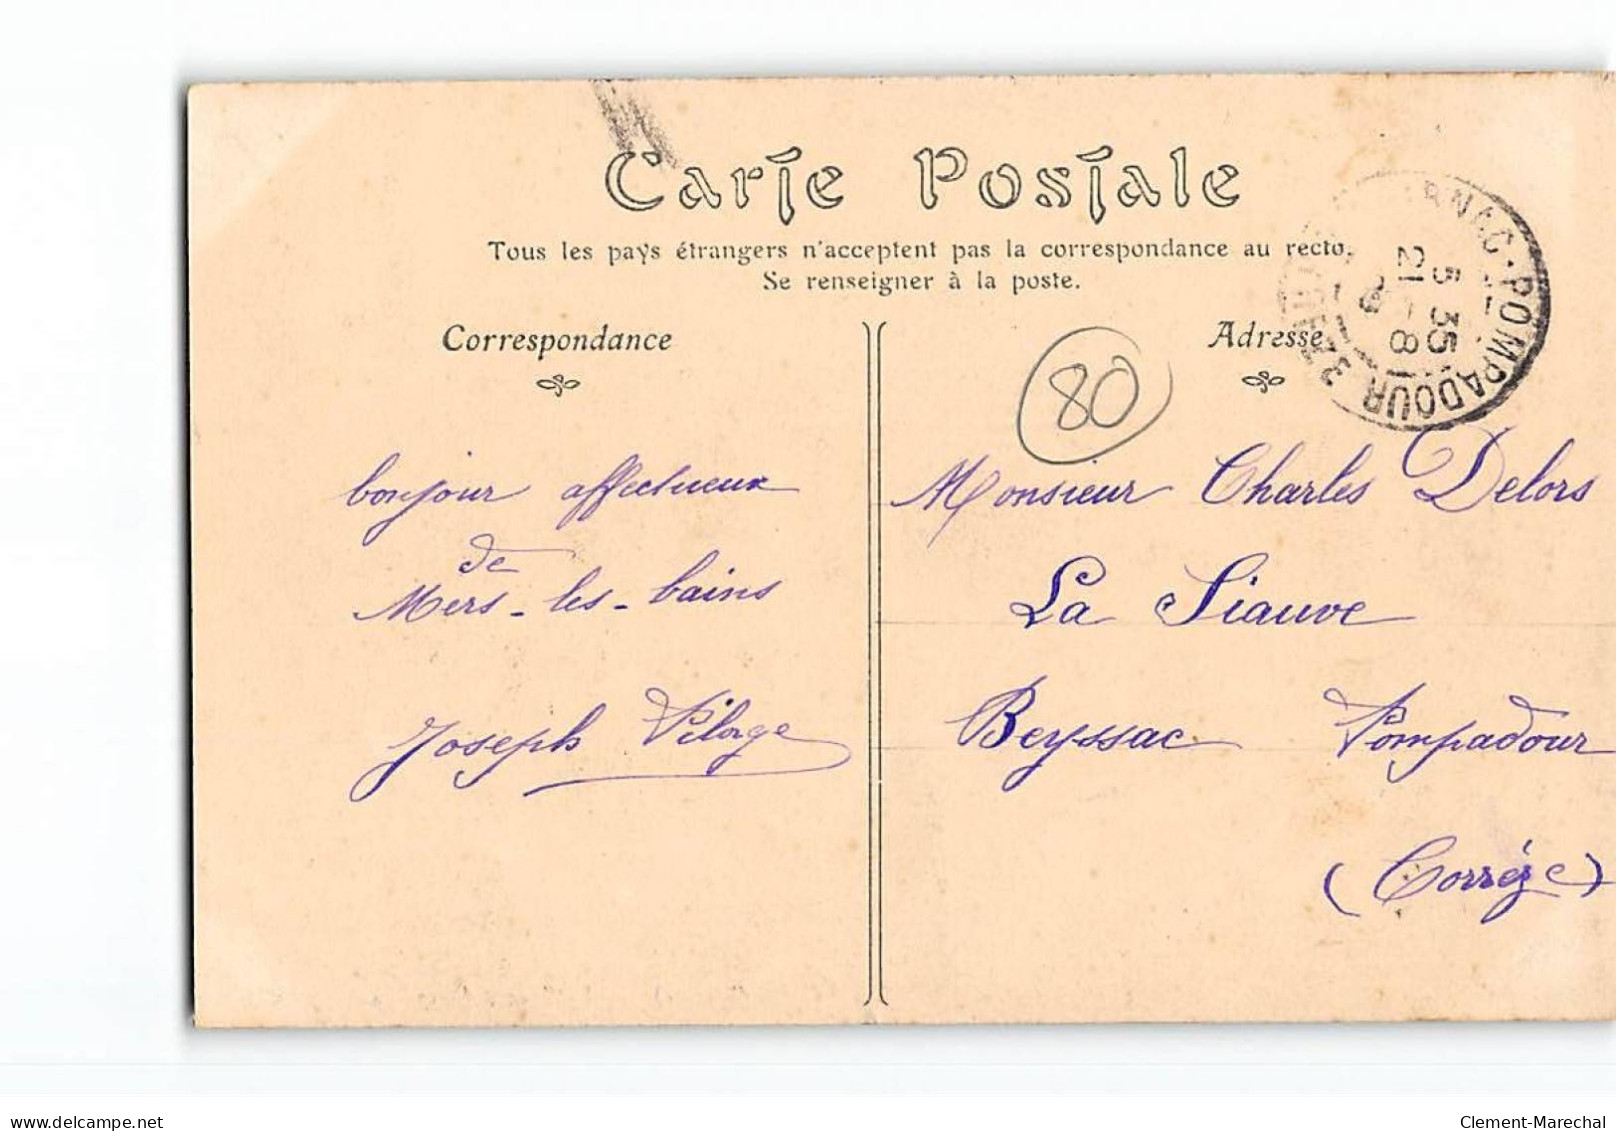 Carte Postale
Tous les pays étrangers n'acceptent pas la correspondance au recto.
Se renseigner à la poste.
Correspondance
Adresse
80
RNAC-POMPADOUR
5 35
21 - 8
bonjour affectueux
de
Mers-les-bains
Joseph Pilorge
Monsieur Charles Delors
La Siauve
Beyssac Pompadour
(Corrèze)
www.delcampe.net
Clement-Marechal